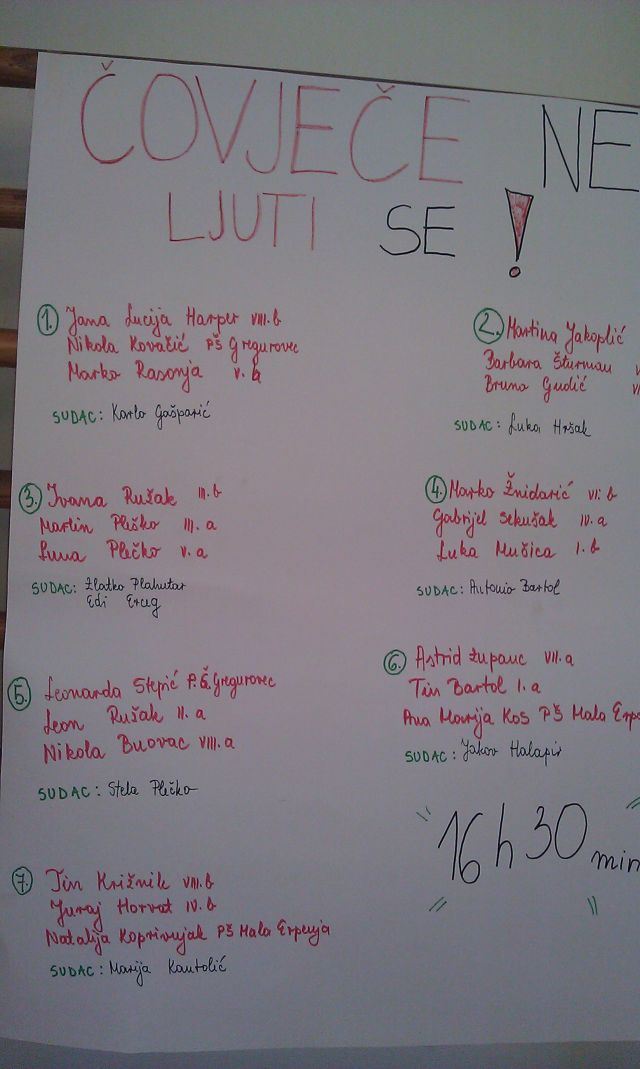 ČOVJEČE NE
LJUTI SE!
1. Jana Lucija Harper VIII.b
Nikola Kovačić PŠ Gregurovec
Marko Rasonja V.b
SUDAC: Karlo Gašparić
2. Martina Jakoplić
Barbara Šturman
Bruno Gudić
SUDAC: Luka Hršak
3. Ivana Rušak III.b
Martin Pliško III.a
Luna Plečko V.a
SUDAC: Zlatko Plahutar
Edi Erceg
4. Marko Žnidarić VI.b
Gabrijel Sekušak IV.a
Luka Mušica I.b
SUDAC: Antonio Bartol
5. Leonarda Stepić P.Š. Gregurovec
Leon Rušak II.a
Nikola Buovac VIII.a
SUDAC: Stela Plečko
6. Astrid Županc VII.a
Tin Bartol I.a
Ana Marija Kos PŠ Mala Erpe
SUDAC: Jakov Halapir
16 h 30 min
7. Tin Križnik VIII.b
Juraj Horvat IV.b
Natalija Koprivnjak PŠ Mala Erpenja
SUDAC: Marija Kantolić